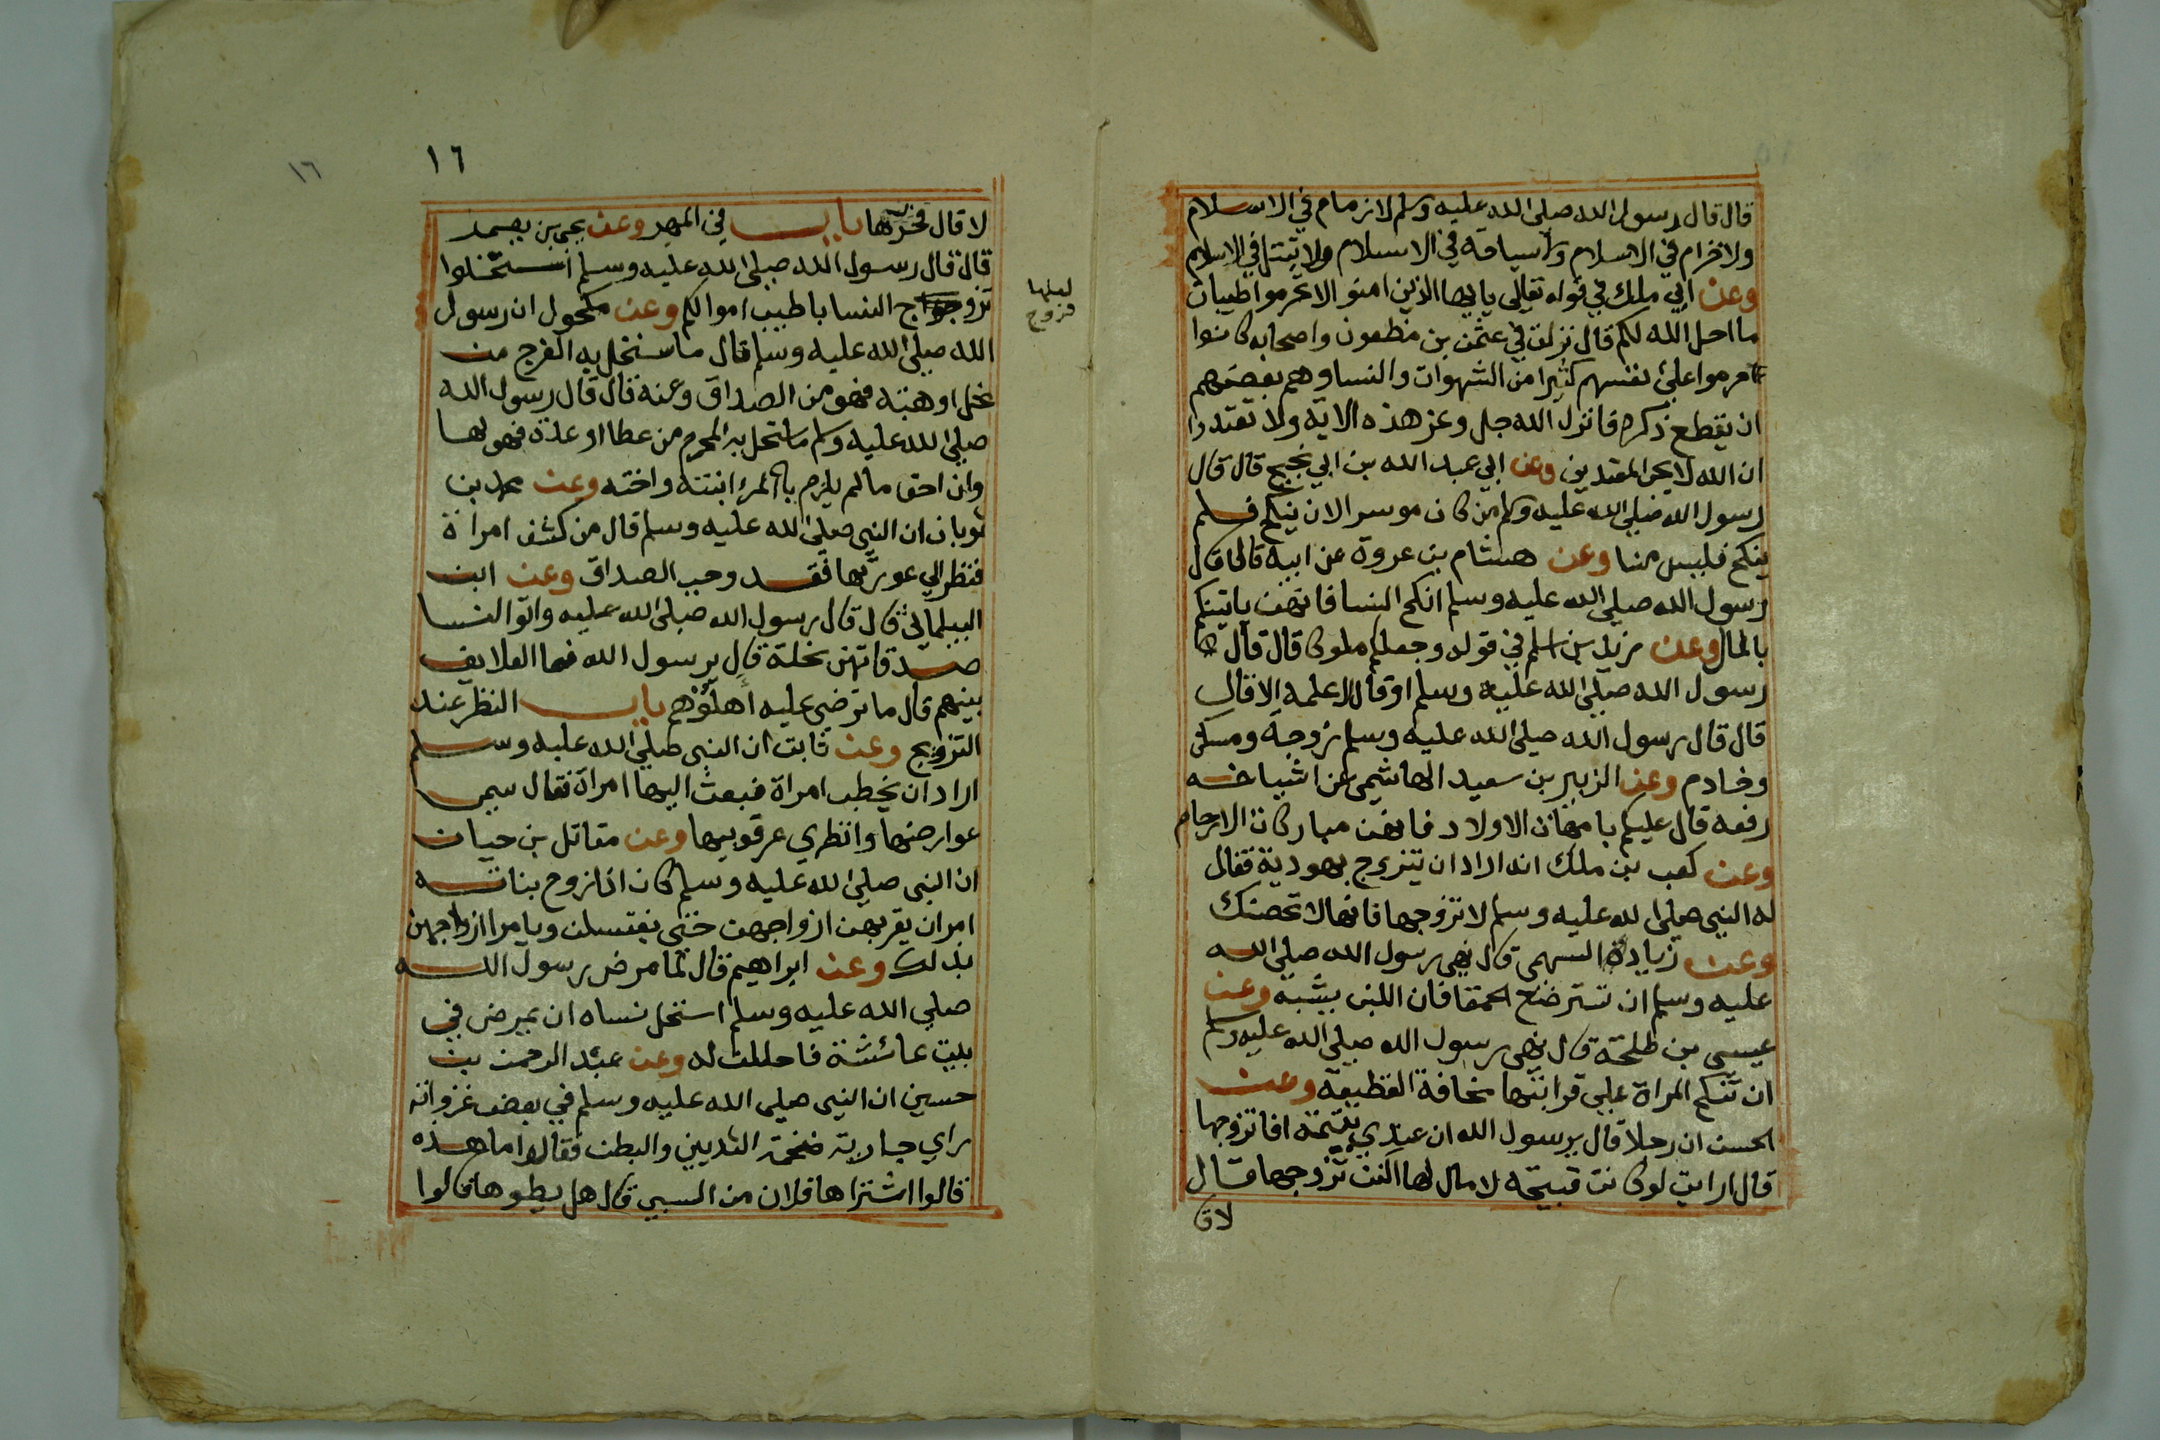 قال قال رسول الله صلى الله عليه وسلم لا زمام في الاسلام
ولا خزام في الاسلام ولا سياحة في الاسلام ولا تبتل في الاسلام
وعن ابي ملك في قوله تعالى يا ايها الذين امنوا لا تحرموا طيبات
ما احل الله لكم قال نزلت في عثمن بن مظعون واصحابه كانوا
حرموا على انفسهم كثيرا من الشهوات والنسا وهم بعضهم
ان يقطع ذكره فانزل الله جل وعز هذه الاية ولا تعتدوا
ان الله لا يحب المعتدين وعن ابي عبد الله بن ابي نجيح قال قال
رسول الله صلى الله عليه وسلم من كان موسرا لان ينكح فلم
ينكح فليس منا وعن هشام بن عروة عن ابيه قال قال
رسول الله صلى الله عليه وسلم انكحوا النسا فانهن ياتينكم
بالمال وعن زيد بن اسلم في قوله وجعلكم ملوكا قال قال
رسول الله صلى الله عليه وسلم او قال لا اعلمه الا قال
قال قال رسول الله صلى الله عليه وسلم زوجة ومسكن
وخادم وعن الزبير بن سعيد الهاشمي عن اشياخه
رفعه قال عليكم بامهات الاولاد فانهن مباركات الارحام
وعن كعب بن ملك انه اراد ان يتزوج يهودية فقال
له النبي صلى الله عليه وسلم لا تزوجها فانها لا تحصنك
وعن زياد السهمي قال نهى رسول الله صلى الله
عليه وسلم ان تسترضع الحمقا فان اللبن يشبه وعن
عيسى بن طلحة قال نهى رسول الله صلى الله عليه وسلم
ان تنكح المراة على قرابتها مخافة القطيعة وعن
الحسن ان رجلا قال يرسول الله ان عندي يتيمة افاتزوجها
قال ارايت لو كانت قبيحة لا مال لها اكنت تزوجها قال
لا ق
١٦
١٦
لا قال فخر لها باب في المهر وعن يحيى بن يعمر
قال قال رسول الله صلى الله عليه وسلم استحلوا
تزوج النسا باطيب اموالكم وعن مكحول ان رسول
لعلها
فزوج
الله صلى الله عليه وسلم قال ما استحل به الفرج من
نحل او هبة فهو من الصداق وعنه قال قال رسول الله
صلى الله عليه وسلم ما استحل به المحرم من عطا او عدة فهو لها
وان احق ما لم يلزم به المرء ابنته واخته وعن محمد بن
ثوبان ان النبي صلى الله عليه وسلم قال من كشف امراة
فنظر الي عورتها فقد وجب الصداق وعن ابن
البيلماني قال قال رسول الله صلى الله عليه واتوا النسا
صدقاتهن نحلة قال يرسول الله فما العلايق
بينهم قال ما ترضى عليه اهلوهم باب النظر عند
التزويج وعن ثابت ان النبي صلى الله عليه وسلم
اراد ان يخطب امراة فبعث اليها امراة فقال شمي
عوارضها وانظري عرقوبيها وعن مقاتل بن حيان
ان النبي صلى الله عليه وسلم كان اذا زوج بناته
امر ان يقربهن ازواجهن حتى يغتسلن ويامر ازواجهن
بذلك وعن ابراهيم قال لما مرض رسول الله
صلى الله عليه وسلم استحل نساه ان يمرض في
بيت عائشة فاحللن له وعن عبد الرحمن بن
حسين ان النبي صلى الله عليه وسلم في بعض غزواته
راي جارية ضخمة الثديين والبطن فقال ما هذه
قالوا اشتراها فلان من السبي قال هل يطوها قالوا